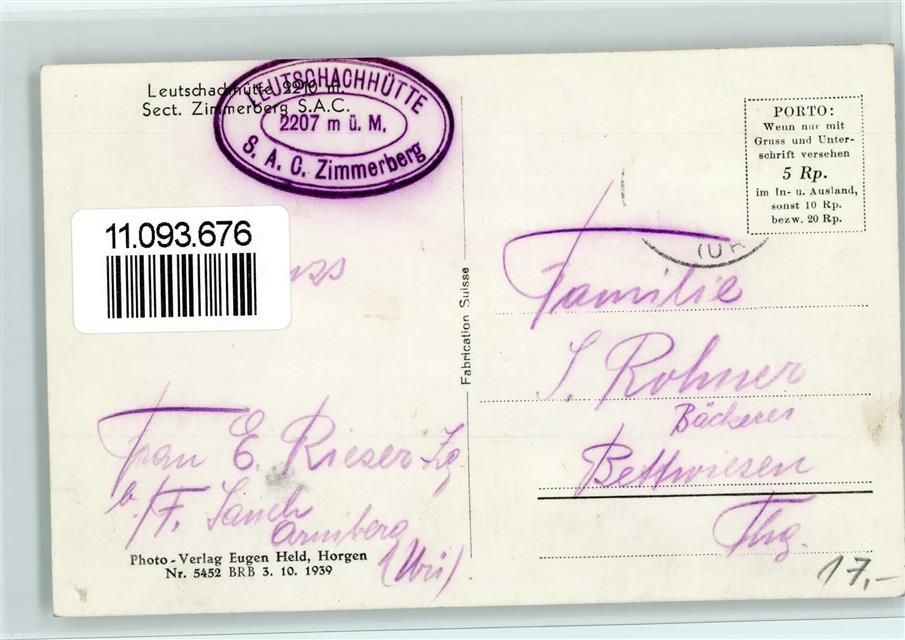 Leutschachhütte 2210 m.
Sect. Zimmerberg S.A.C.
LEUTSCHACHHÜTTE
2207 m ü. M.
S. A. C. Zimmerberg
PORTO:
Wenn nur mit
Gruss und Unter-
schrift versehen
5 Rp.
im In- u. Ausland,
sonst 10 Rp.
bezw. 20 Rp.
11.093.676
Fabrication Suisse
Familie
J. Rohner
Bäckerei
Bettwiesen
Thg.
Frau E. Rieser
(Uri)
Photo-Verlag Eugen Held, Horgen
Nr. 5452 BRB 3. 10. 1939
17,-